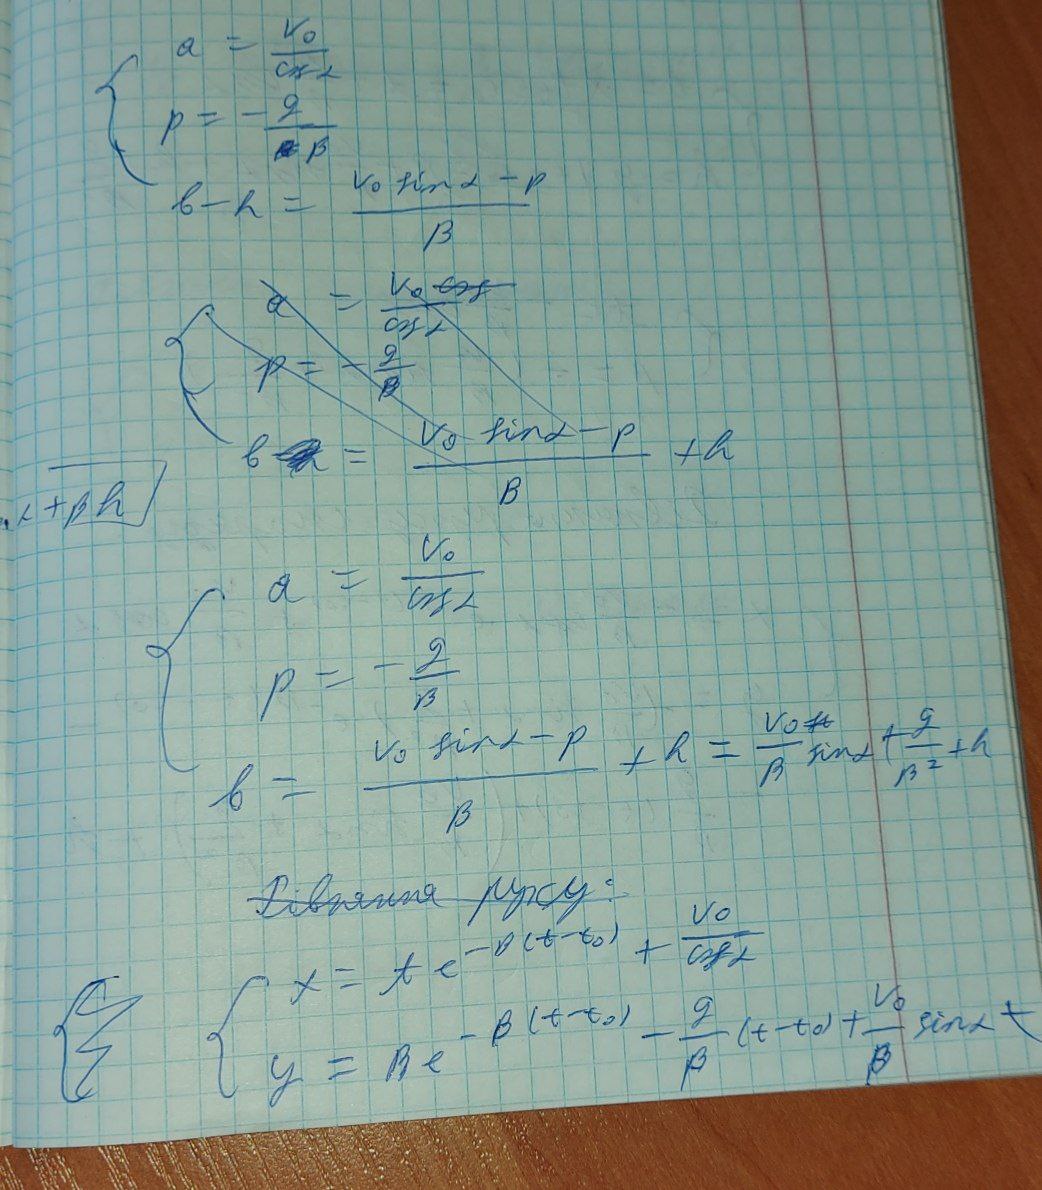 a = v₀/cosα
p = -g/β
b-h = (v₀ sinα - p)/β
a = v₀/cosα
p = -g/β
b = (v₀ sinα - p)/β + h
α+βh
a = v₀/cosα
p = -g/β
b = (v₀ sinα - p)/β + h = v₀/β sinα + g/β² + h
Рівняння руху:
x = A e^(-β(t-t₀)) + v₀/cosα
y = B e^(-β(t-t₀)) - g/β (t-t₀) + v₀/β sinα +